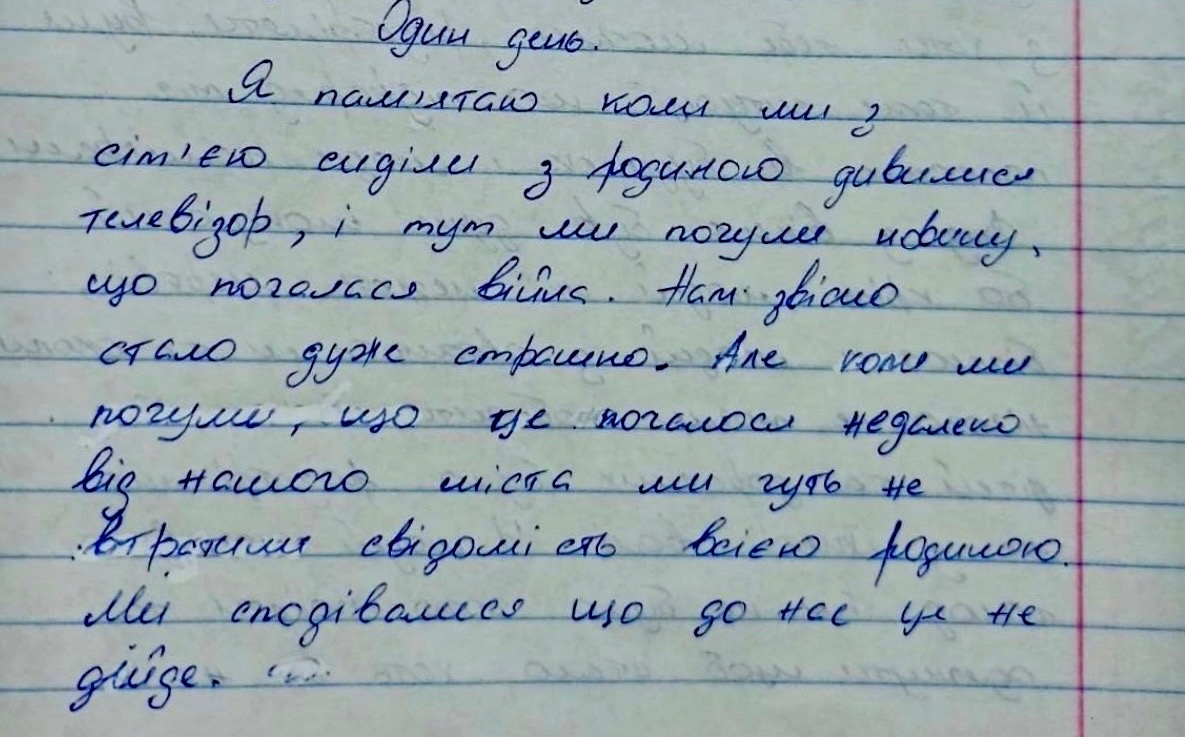 Один день.
Я пам'ятаю коли ми з
сім'єю сиділи з родиною дивилися
телевізор, і тут ми почули новину,
що почалася війна. Нам звісно
стало дуже страшно. Але коли ми
почули, що це почалося недалеко
від нашого міста ми чуть не
втратили свідомість всією родиною.
Ми сподівалися що до нас це не
дійде.